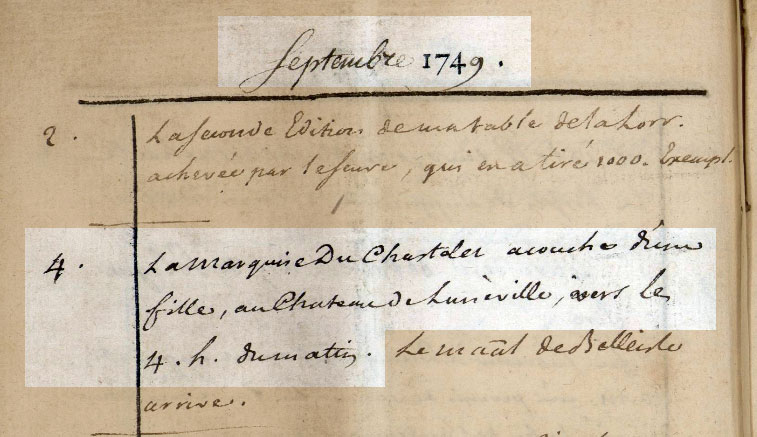 Septembre 1749.
2. La seconde Edition de ma table de la Lorr.
achevée par Leseure, qui en a tiré 1000. Exempl.
4. La Marquise Du Chastelet acouche d'une
fille, au Chateau de Luneville, vers le
4. h. du matin. Le maãl de Bellisle
arrive.